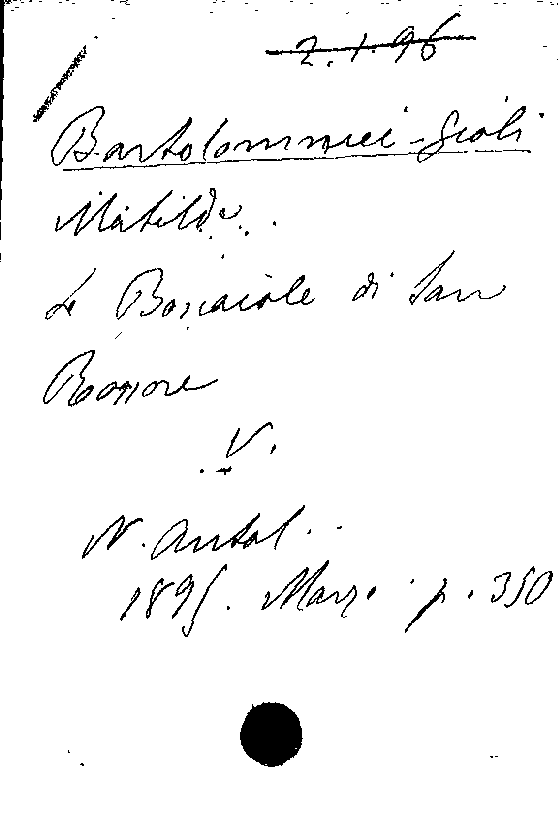 2.1.96
Bartolommei-Gioli
Matilde.
Le Boscaiole di San
Rossore
V.
N. Antol.
1895. Marzo p. 350